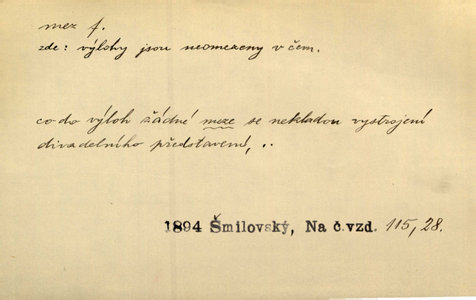 mez f.
zde: výlohy jsou neomezeny v čem.
co do výloh žádné meze se nekladou vystrojení
divadelního představení, ..
1894 Šmilovský, Na č.vzd. 115, 28.